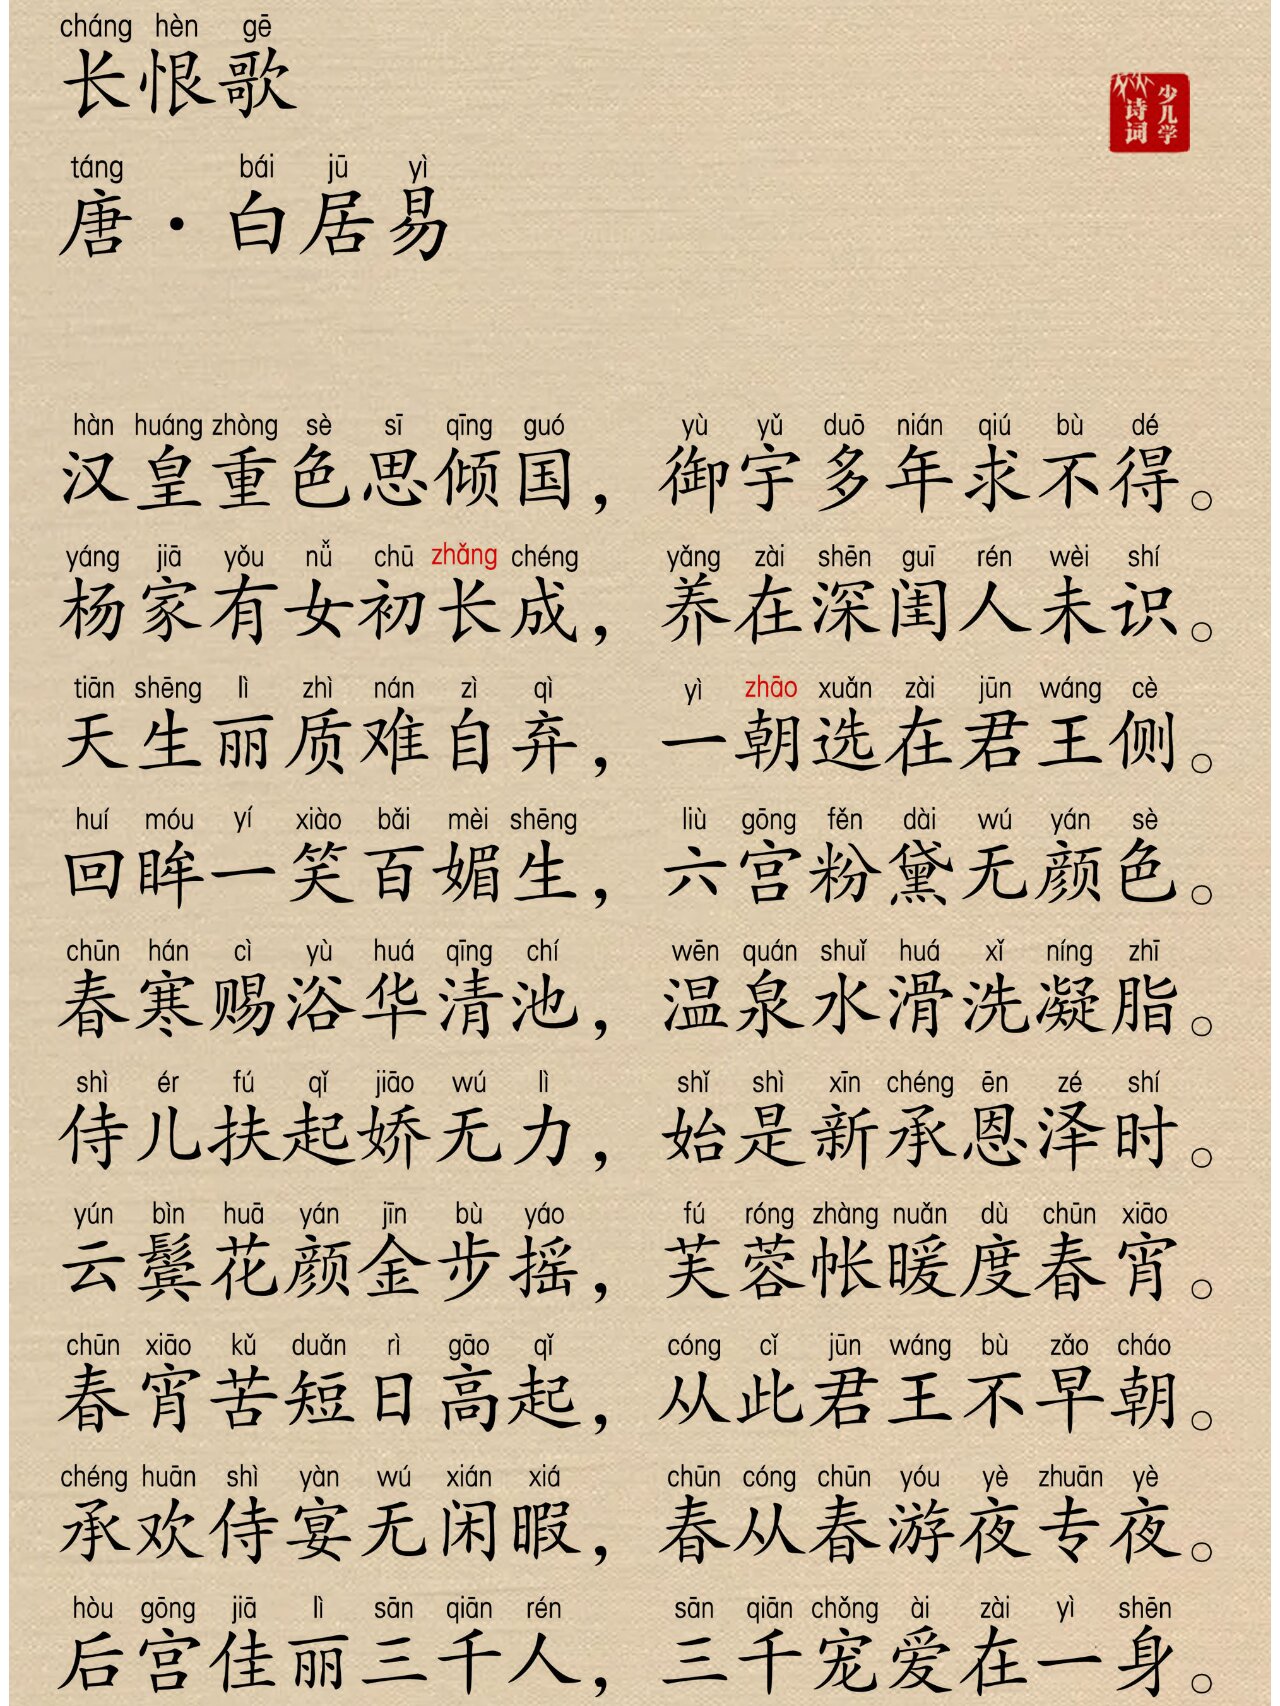 cháng hèn gē
长恨歌
少儿学
诗词
táng bái jū yì
唐·白居易
hàn huáng zhòng sè sī qīng guó yù yǔ duō nián qiú bù dé
汉皇重色思倾国，御宇多年求不得。
yáng jiā yǒu nǚ chū zhǎng chéng yǎng zài shēn guī rén wèi shí
杨家有女初长成，养在深闺人未识。
tiān shēng lì zhì nán zì qì yì zhāo xuǎn zài jūn wáng cè
天生丽质难自弃，一朝选在君王侧。
huí móu yí xiào bǎi mèi shēng liù gōng fěn dài wú yán sè
回眸一笑百媚生，六宫粉黛无颜色。
chūn hán cì yù huá qīng chí wēn quán shuǐ huá xǐ níng zhī
春寒赐浴华清池，温泉水滑洗凝脂。
shì ér fú qǐ jiāo wú lì shǐ shì xīn chéng ēn zé shí
侍儿扶起娇无力，始是新承恩泽时。
yún bìn huā yán jīn bù yáo fú róng zhàng nuǎn dù chūn xiāo
云鬓花颜金步摇，芙蓉帐暖度春宵。
chūn xiāo kǔ duǎn rì gāo qǐ cóng cǐ jūn wáng bù zǎo cháo
春宵苦短日高起，从此君王不早朝。
chéng huān shì yàn wú xián xiá chūn cóng chūn yóu yè zhuān yè
承欢侍宴无闲暇，春从春游夜专夜。
hòu gōng jiā lì sān qiān rén sān qiān chǒng ài zài yì shēn
后宫佳丽三千人，三千宠爱在一身。